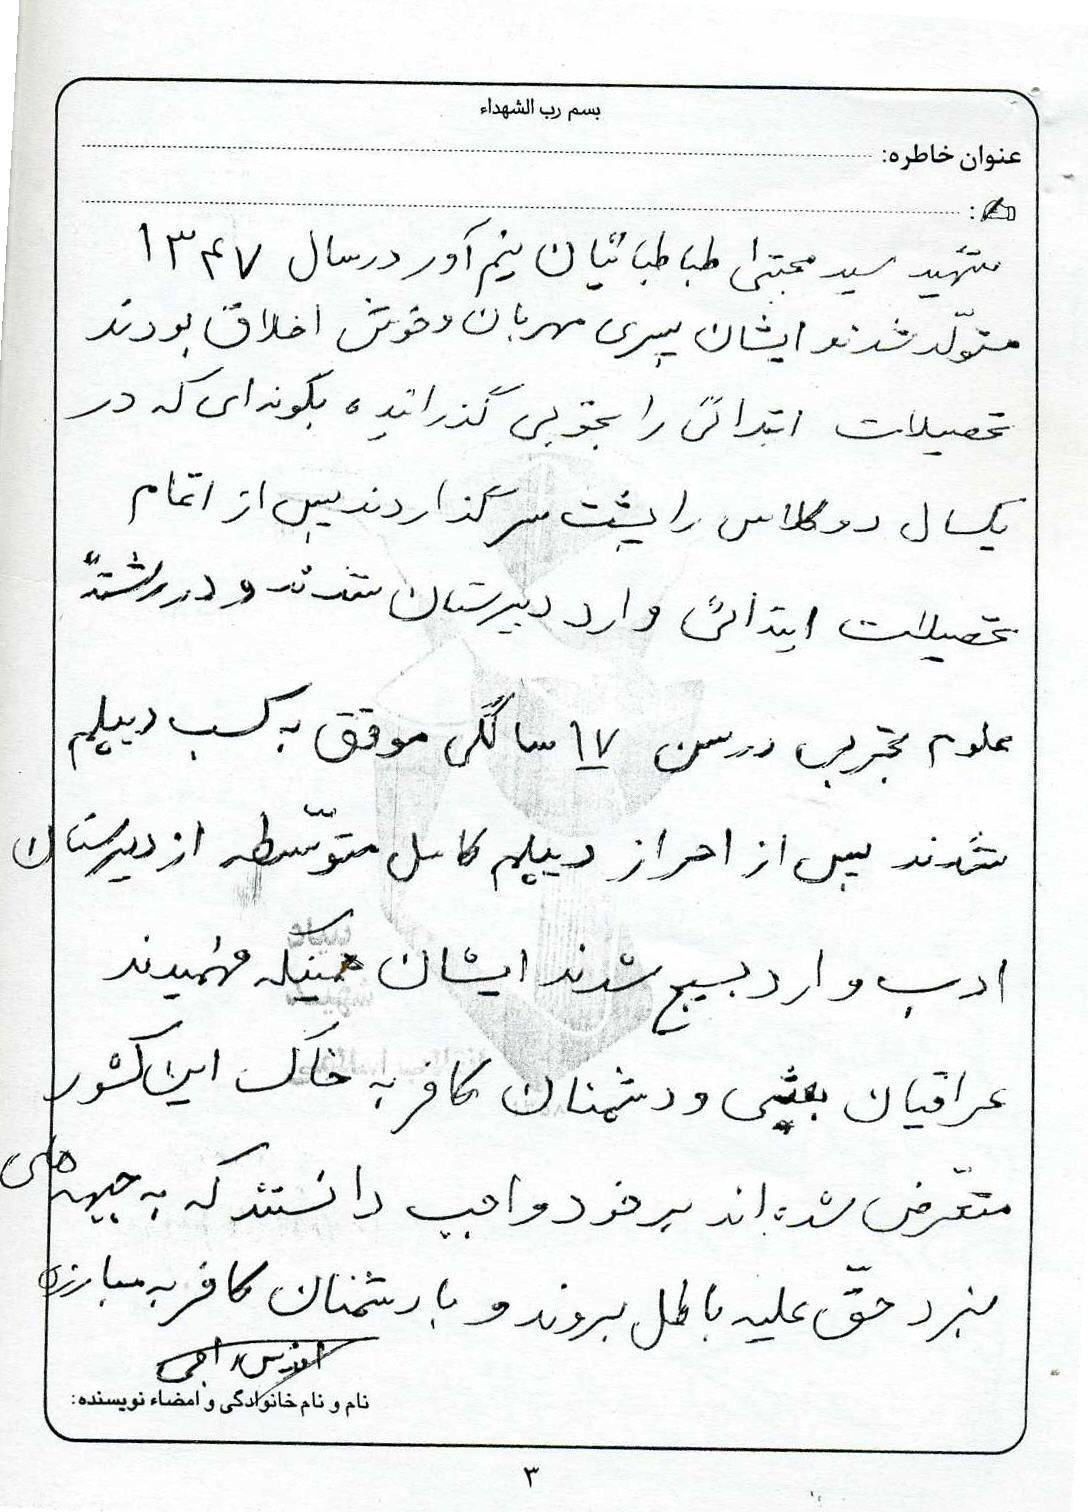 بسم رب الشهداء
عنوان خاطره:
شهید سید مجتبی طباطبائیان نیم آور در سال ۱۳۴۷
متولّد شدند ایشان پسری مهربان و خوش اخلاق بودند
تحصیلات ابتدائی را بخوبی گذرانیده بگونه ای که در
یکسال دو کلاس را پشت سر گذاردند پس از اتمام
تحصیلات ابتدائی وارد دبیرستان شدند و در رشتهٔ
علوم تجربی در سن ۱۷ سالگی موفق به کسب دیپلم
شدند پس از احراز دیپلم کامل متوّسطه از دبیرستان
ادب وارد بسیج شدند ایشان همینکه فهمیدند
عراقیان بعثی و دشمنان کافر به خاک این کشور
متعّرض شده اند بر خود واجب دانستند که به جبهه های
نبرد حقّ علیه باطل بروند و با دشمنان کافر به مبارزه
نام و نام خانوادگی و امضاء نویسنده:
۳